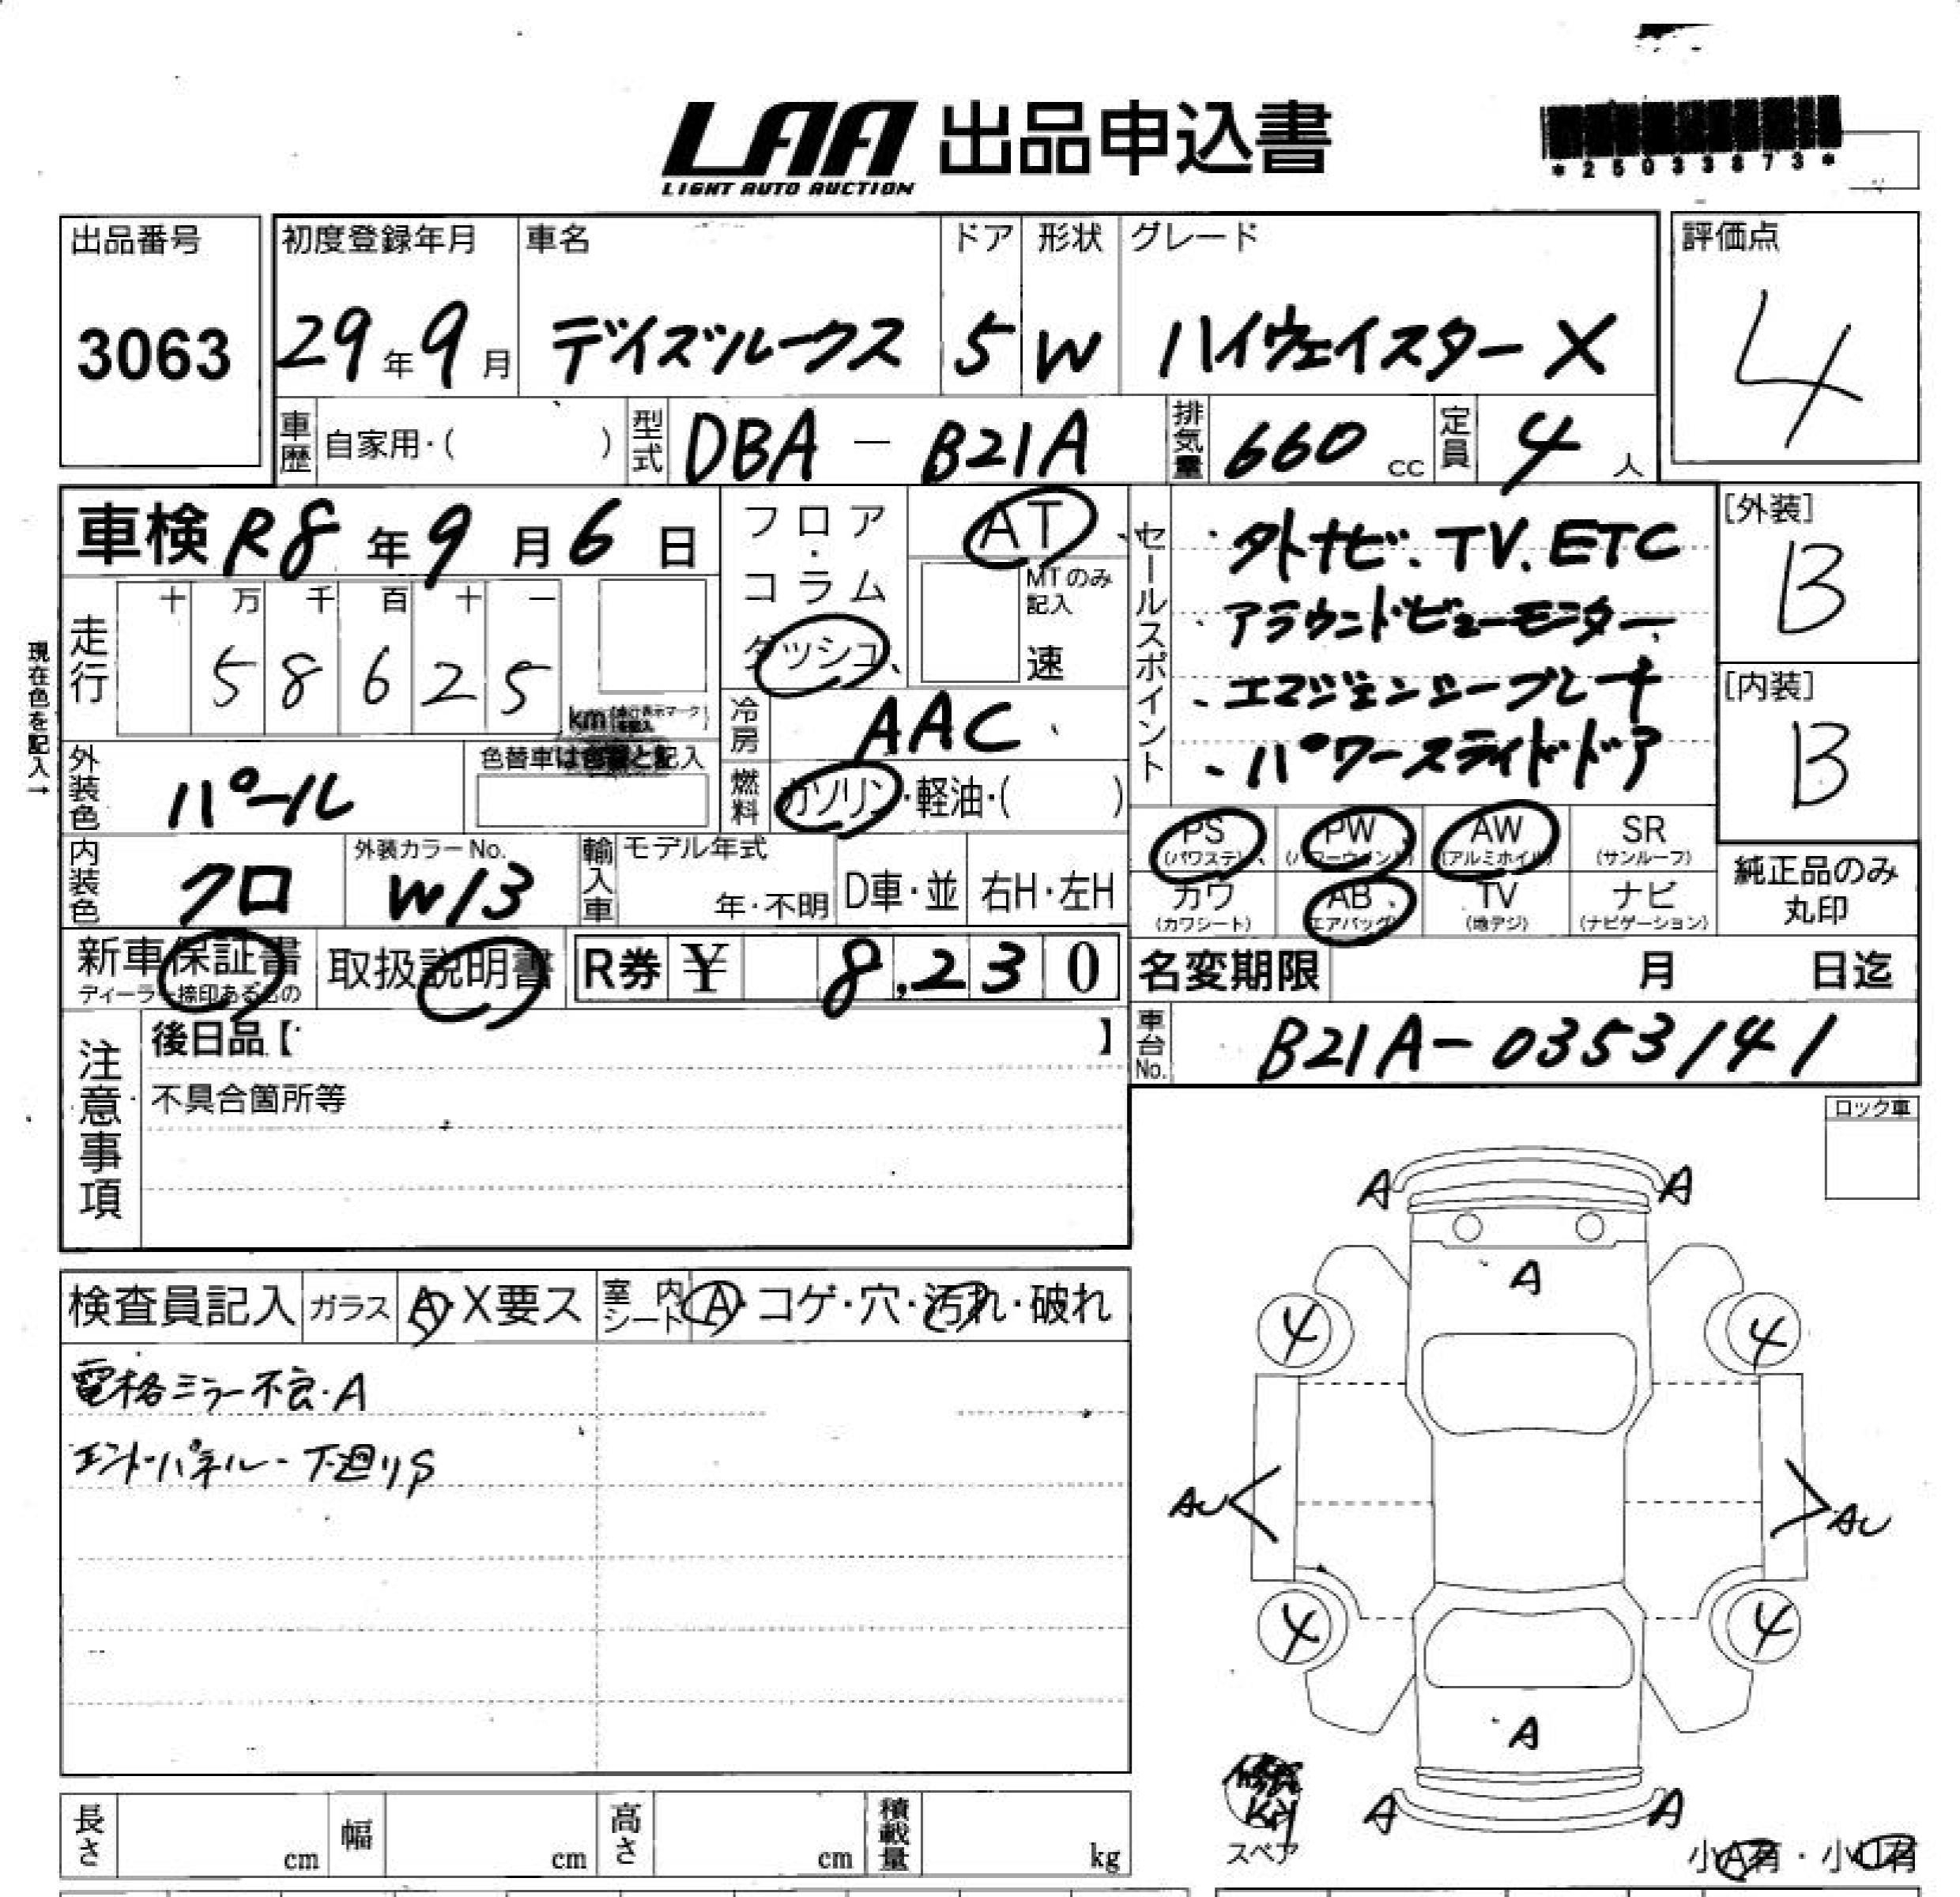 LAA 出品申込書
LIGHT AUTO AUCTION
*25033873*
出品番号
3063
初度登録年月
29年9月
車名
デイズルークス
ドア
5
形状
W
グレード
ハイウェイスター X
評価点
4
車歴 自家用・( )
型式 DBA － B21A
排気量 660 cc
定員 4 人
車検 R8年9月6日
フロア・コラム
ダッシュ
AT
MTのみ記入
速
現在色を記入→
走行
十 万 千 百 十 一
5 8 6 2 5
km
冷房 AAC
燃料 ガソリン・軽油・( )
セールスポイント
・外ナビ、TV、ETC
アラウンドビューモニター
・エマジェンシーブレーキ
・パワースライドドア
[外装]
B
[内装]
B
外装色 パール
色替車は色替と記入
内装色 クロ
外装カラーNo.
W13
輸入車
モデル年式
年・不明
D車・並
右H・左H
PS (パワステ)
PW (パワーウィンドウ)
AW (アルミホイル)
SR (サンルーフ)
カワ (カワシート)
AB (エアバッグ)
TV (地デジ)
ナビ (ナビゲーション)
純正品のみ
丸印
新車保証書
ディーラー捺印あるもの
取扱説明書
R券 ¥ 8,230
名変期限 月 日迄
車台No. B21A-0353141
注意事項
後日品【 】
不具合箇所等
ロック車
検査員記入
ガラス A・X要ス
室内シート A・コゲ・穴・汚れ・破れ
電格ミラー不良・A
エンドパネル・下廻りS
A A
A
4 4
AU AU
4 4
A
A A
スペア
小A有・小U有
長さ cm
幅 cm
高さ cm
積載量 kg